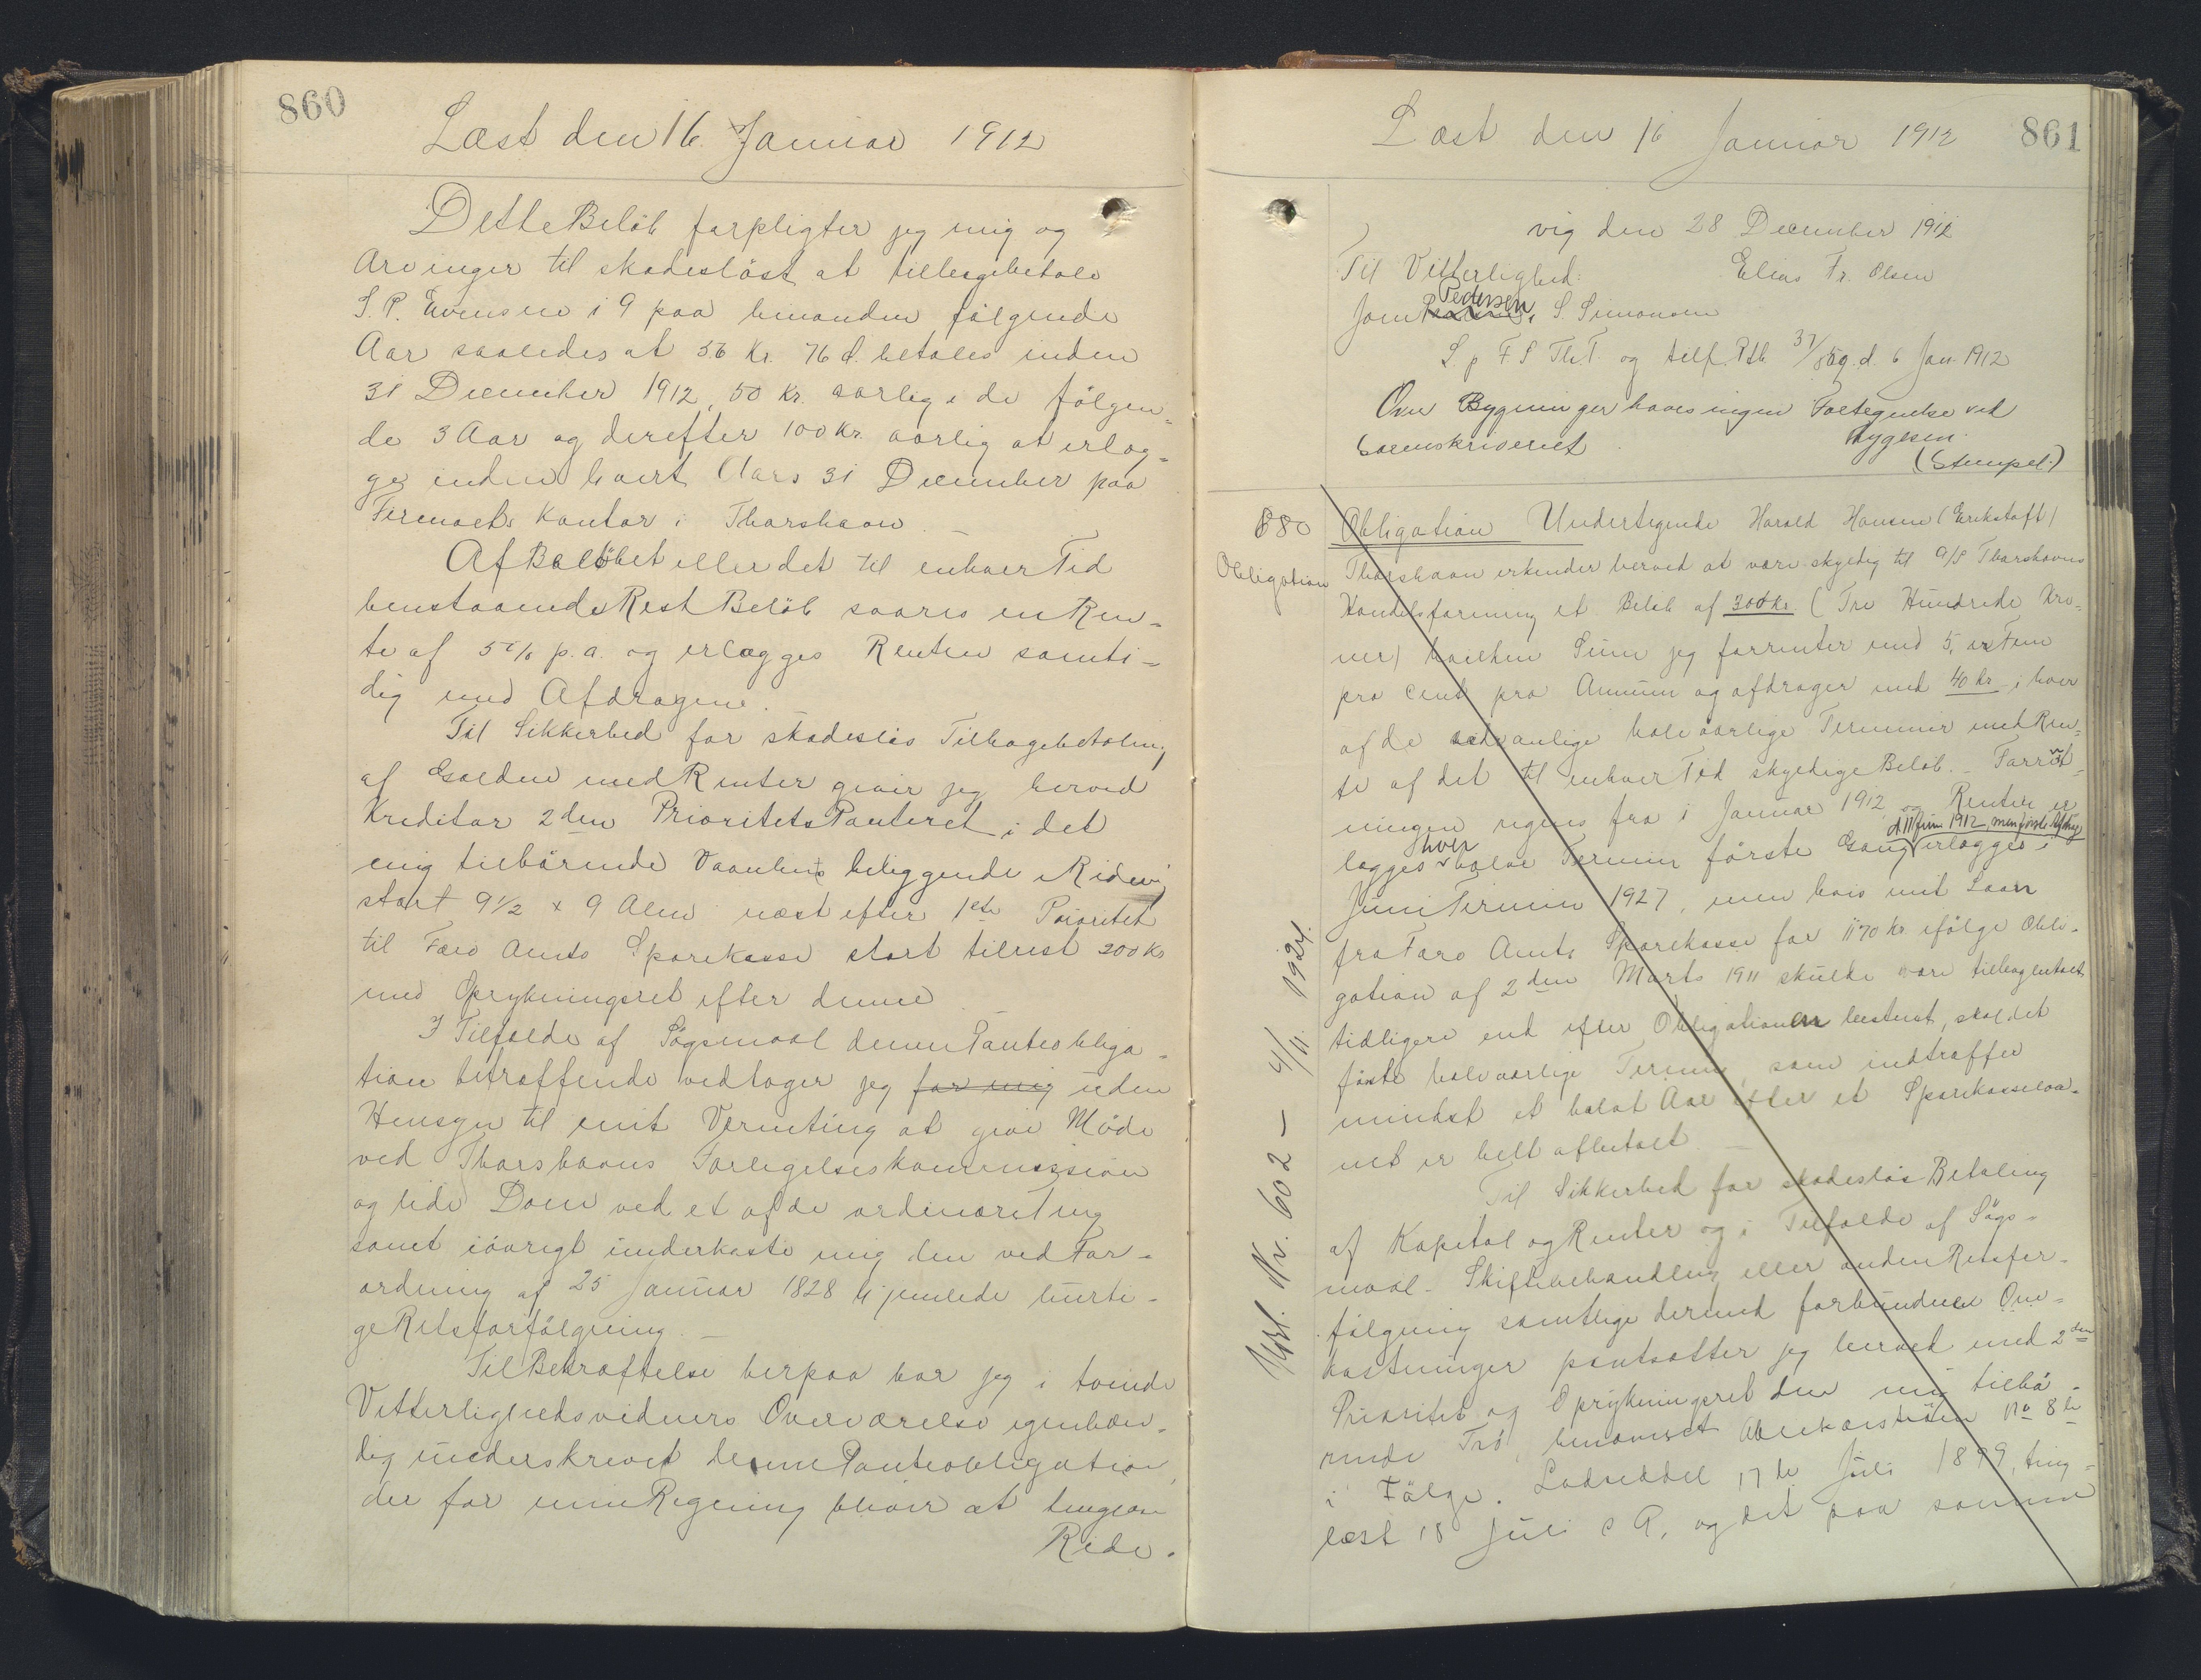 860
Læst den 16. Januar 1912
Dette Beløb forpligter jeg mig og
Arvinger til skadesløst at tilbagebetale
S. P. Evensen i 9 paa hinanden følgende
Aar saaledes at 56 Kr. 76 Ø. betales inden
31 December 1912, 50 Kr. aarlig i de følgen-
de 3 Aar og derefter 100 Kr. aarlig at erlæg-
ges inden hvert Aars 31 December paa
Firmaets Kontor i Thorshavn
Af Beløbet eller det til enhver Tid
henstaaende Rest Beløb svares en Ren-
te af 5 % p.a. og erlægges Renten samti-
dig med Afdragene.
Til Sikkerhed for skadesløs Tilbagebetaling
af Gælden med Renter giver jeg herved
Kreditor 2den Prioritets Panteret i det
mig tilhørende Vaanhus beliggende i Ridevig
stort 9 1/2 x 9 Alen næst efter 1ste Prioritet
til Færø Amts Sparekasse stort tilrest 200 Kr
med Oprykningsret efter denne
I Tilfælde af Søgsmaal denne Panteobliga-
tion betræffende vedtager jeg for mig uden
Hensyn til mit Værneting at give Møde
ved Thorshavns Forligelseskommission
og lide Dom ved et af de ordinære Ting
samt iøvrigt underkaste mig den ved For-
ordning af 25 Januar 1828 hjemlede hurti-
ge Retsforfølgning.
Til Bekræftelse herpaa har jeg i tvende
Vitterlighedsvidners Overværelse egenhæn-
dig underskrevet denne Panteobligation,
der for min Regning bliver at tinglæse
Ride-
861
Læst den 16 Januar 1912
vig den 28 December 1911
Til Vitterlighed: Elias Fr. Olsen
Pedersen
Joen S. Simonsen
S. p F. S Th. T. og tilf. Ptb 37/559 d 6 Jan 1912
Over Bygninger haves ingen Fortegnelse ved
Sorenskriveriet Bygesen.
(Stempel.)
880 Obligation Undertegnede Harald Hansen (Erikstoft)
Obligation Thorshavn erkender herved at være skyldig til A/S Thorshavns
Handelsforening et Beløb af 300 Kr. (Tre Hundrede Kro-
ner) hvilken Sum jeg forrenter med 5, er Fem
pro Cent pro Annum og afdrager med 40 Kr i hver
af de sædvanlige halvaarlige Terminer med Ren-
te af det til enhver Tid skyldige Beløb. - Forrent-
ningen regnes fra 1 Januar 1912 og Renten er-
d. 11 Juni 1912, men første Afdrag
hver
lægges halve Termin første Gang erlægges i
Juni Termin 1927, men hvis mit Laan
fra Færø Amts Sparekasse for 1170 Kr ifølge Obli-
gation af 2den Marts 1911 skulde være tilbagebetalt
tidligere end efter Obligationen bestemt, skal det
første halvaarlige Termin, som indtræffer
mindst et halvt Aar efter et Sparekasselaa-
net er helt afbetalt. -
Til Sikkerhed for skadesløs Betaling
af Kapital og Renter og i Tilfælde af Søgs-
maal - Skiftebehandling eller anden Retsfor-
følgning samtlige dermed forbundne Om-
kostninger pantsætter jeg herved med 2den
Prioritet og Oprykningsret den mig tilhø-
rende Trø, benævnt No 8 b
i Følge Lodseddel 17de Juli 1899, ting-
læst 18 Juli s A, og det paa samme
Udsl. Nr. 602 - 4/11 1924.